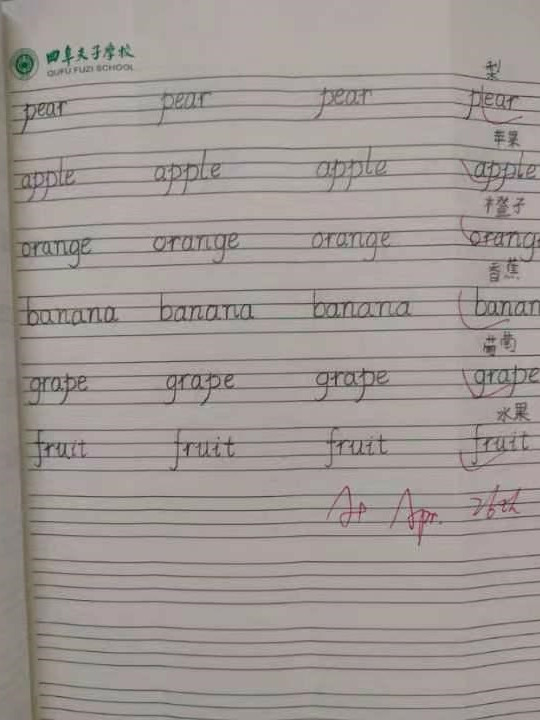 曲阜夫子学校
QUFU FUZI SCHOOL
梨
pear pear pear plear
苹果
apple apple apple apple
橙子
orange orange orange orang
香蕉
banana banana banana banan
葡萄
grape grape grape grape
水果
fruit fruit fruit fruit
A+ Apr. 26th